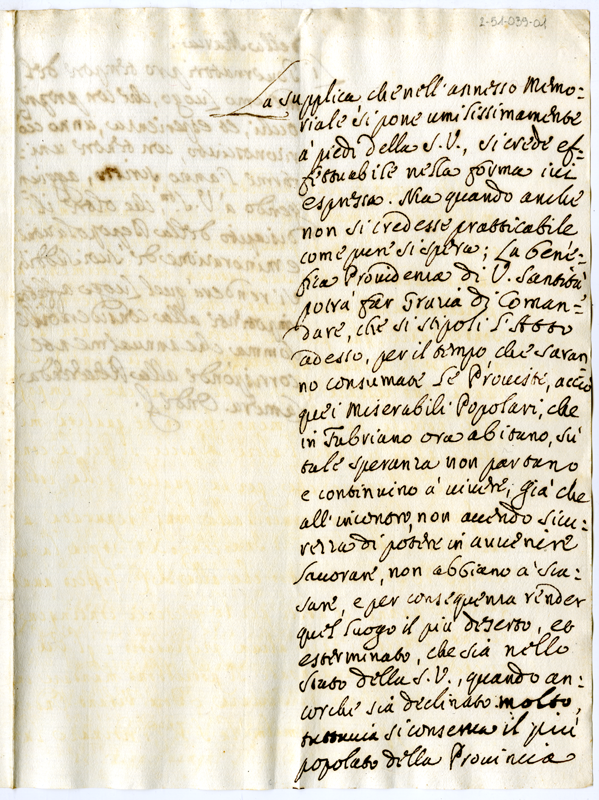 2-51-039-01
La supplica, che nell'annesso Memo=
riale si pone umilissimamente
a' piedi della S.V., si crede ef=
fettuabile nella forma ivi
espressa. Ma quando anche
non si credesse pratticabile
come pure si spera; La bene=
fica Providenza di V. Santità
potrà far Grazia di Coman=
dare, che si stipoli l'Atto
adesso, per il tempo che saran
no consumate le Provviste, acciò
quei Miserabili Popolari, che
in Fabriano ora abitano, sù
tale speranza non partano
e continuino à vivere, già che
all'incontro, non avendo sicu=
rezza di potere in avvenire
lavorare, non abbiano à la=
sare, e per conseguenza render
quel luogo il più deserto, et
esterminato, che sia nello
Stato della S.V., quando an=
corche sia declinato molto,
tuttavia si conserva il più
popolato della Provincia